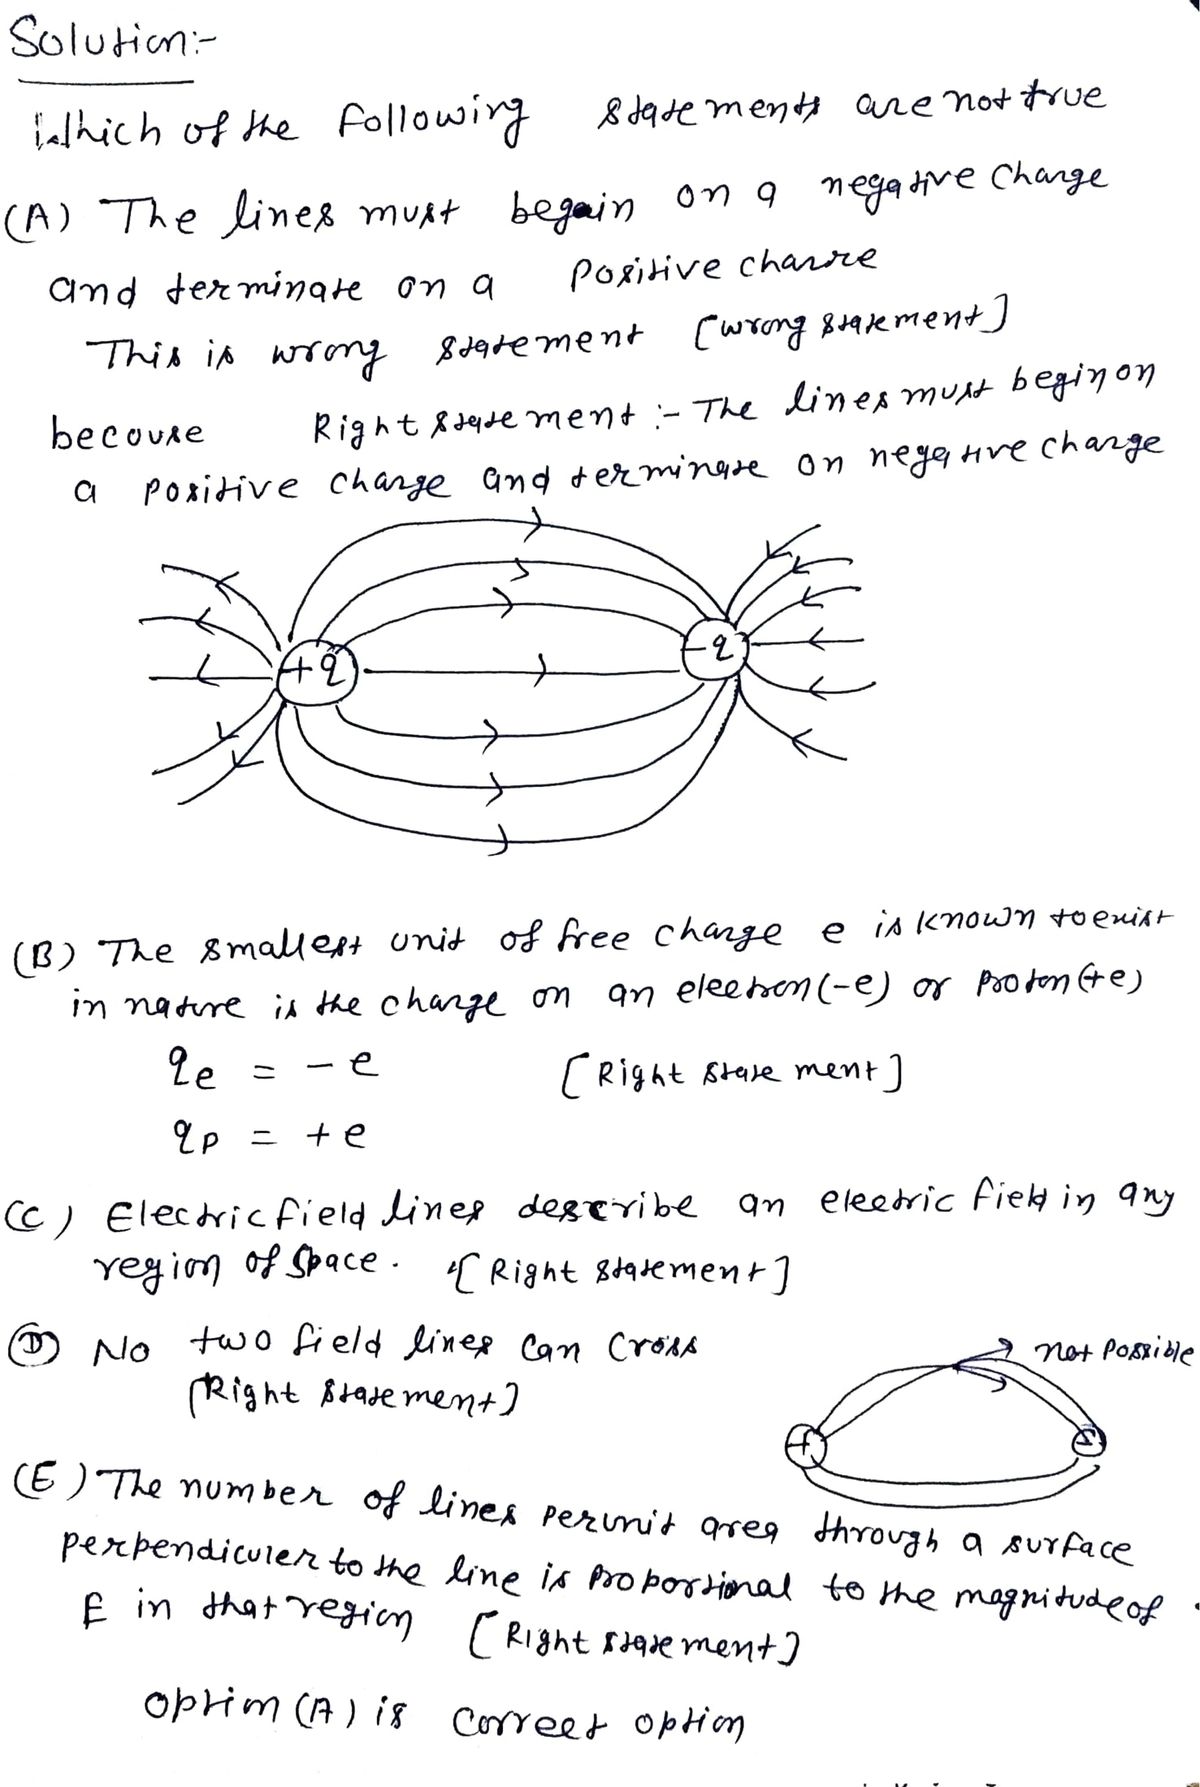 Solution:-
Which of the following statements are not true
(A) The lines must begain on a negative Charge
and terminate on a Positive charre
This is wrong statement [wrong statement]
becouse Right statement :- The lines must begin on
a positive charge and terminate on negative charge
+q
-q
(B) The smallest unit of free charge e is known to exist
in nature is the charge on an electron (-e) or proton (+e)
qe = - e [Right statement]
qp = + e
(C) Electric field lines describe an electric field in any
region of space. [Right statement]
(D) No two field lines can cross
[Right statement]
not possible
+
-
(E) The number of lines per unit area through a surface
perpendiculer to the line is proportional to the magnitude of
E in that region [Right statement]
option (A) is correct option